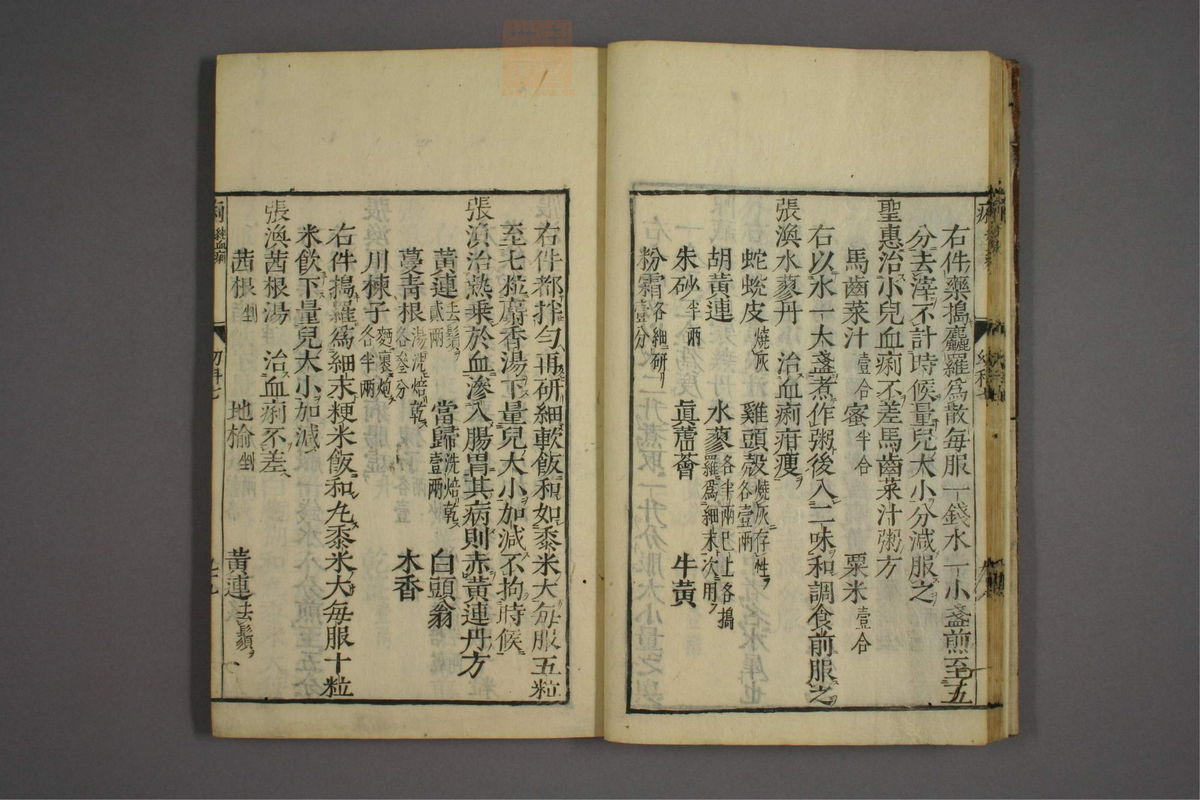 右件藥搗麤羅爲散每服一錢水一小盞煎至五
分去滓不計時候量兒大小分減服之
聖惠治小兒血痢不差馬齒菜汁粥方
馬齒菜汁壹合 蜜半合 粟米壹合
右以水一大盞煮作粥後入二味和調食前服之
張渙水蓼丹 治血痢疳瘦
蛇蛻皮燒灰 雞頭殼燒灰存性各壹兩
胡黃連 水蓼各半兩已上各搗羅爲細末次用
朱砂半兩 眞蘆薈 牛黃
粉霜各細研壹分
右件都拌勻再研細軟飯和如黍米大每服五粒
至七粒麝香湯下量兒大小加減不拘時候
張渙治熱乘於血滲入腸胃其病則赤黃連丹方
黃連去鬚貳兩 當歸洗焙乾壹兩 白頭翁
蔓青根湯洗焙乾各叁分 木香
川楝子麵裹炮各半兩
右件搗羅爲細末粳米飯和丸黍米大每服十粒
米飲下量兒大小加減
張渙茜根湯 治血痢不差
茜根剉 地榆剉 黃連去鬚